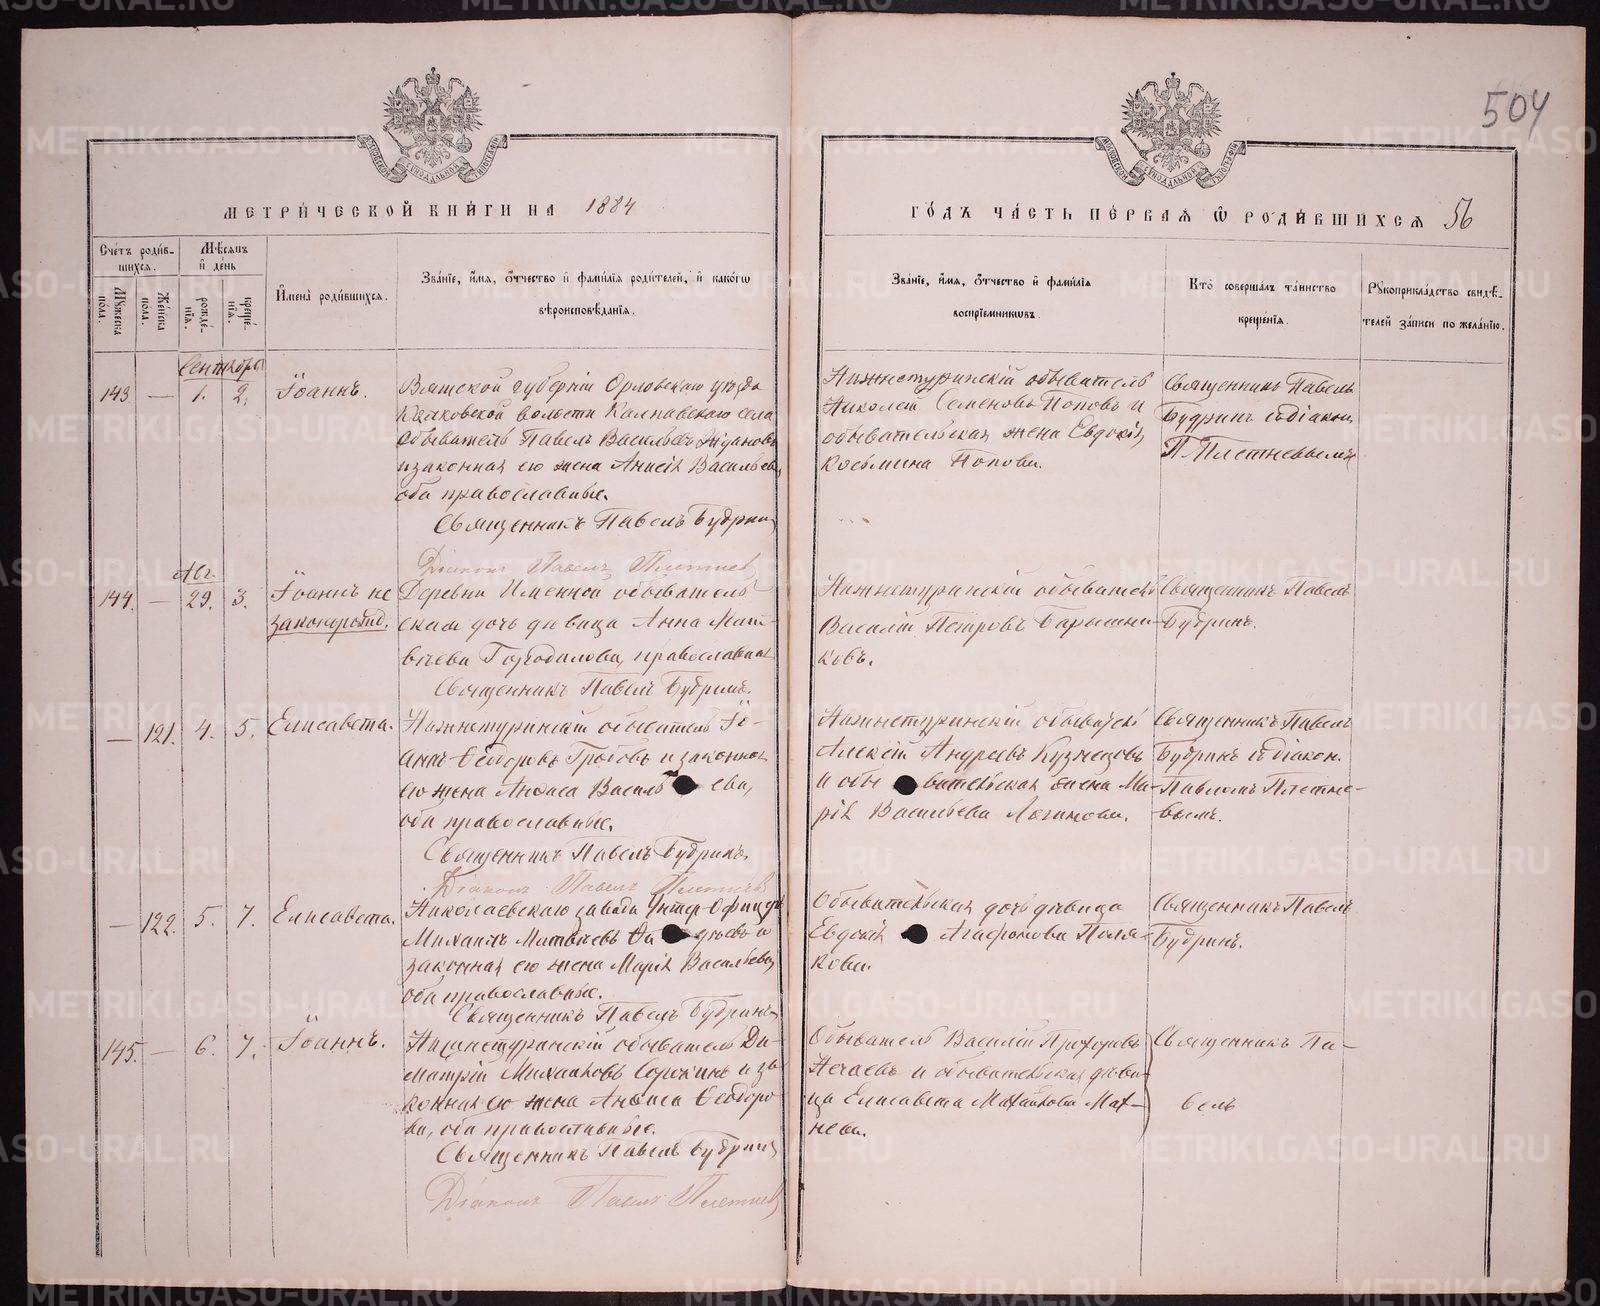 504
МЕТРИЧЕСКОЙ КНИГИ НА 1884
ГОДЪ ЧАСТЬ ПЕРВАЯ Ѿ РОДИВШИХСЯ 56
Счетъ родив-
шихся.
Мѣсяцъ
и день
Мужеска пола.
Женска пола.
рожде-
нія.
креще-
нія.
Имена родившихся.
Званіе, имя, отчество и фамилія родителей, и какогѡ
вѣроисповѣданія.
Званіе, имя, отчество и фамилія
воспріемниковъ.
Кто совершалъ таинство
крещенія.
Рукоприкладство свидѣ-
телей записи по желанію.
Сентябрь
143 — 1. 2. Іоаннъ.
Вятской губерніи Орловскаго уѣзда
волости села
обыватель Павелъ Васильевъ Ждановъ
и законная его жена Анисія Васильева
оба православные.
Священникъ Павелъ Будринъ
Діаконъ Павелъ Плетневъ
Нижнетуринскій обыватель
Николай Семеновъ Поповъ и
обывательская жена Евдокія
Косьмина Попова.
Священникъ Павелъ
Будринъ съ діакон.
П. Плетневымъ
Авг.
144. — 29. 3. Іоаннъ не
законорожд.
Деревни Именной обыватель-
ская дочь дѣвица Анна Мат-
вѣева православная
Священникъ Павелъ Будринъ.
Нижнетуринскій обыватель
Василій Петровъ Барышни-
ковъ.
Священникъ Павелъ
Будринъ.
— 121. 4. 5. Елисавета.
Нижнетуринскій обыватель Іо-
аннъ Ѳеодоровъ и законная
его жена Анфиса Василь ева,
оба православные.
Священникъ Павелъ Будринъ.
Діаконъ Павелъ Плетневъ
Нижнетуринскій обыватель
Алексій Андреевъ Кузнецовъ
и обы вательская жена Ма-
рія Васильева Логинова.
Священникъ Павелъ
Будринъ съ діакон.
Павломъ Плетне-
вымъ.
— 122. 5. 7. Елисавета.
Николаевскаго завода Унтер-Офицеръ
Михаилъ Матвѣевъ и
законная его жена Марія Васильева
оба православные.
Священникъ Павелъ Будринъ
Обывательская дочь дѣвица
Евдокія Агафонова Поля-
кова.
Священникъ Павелъ
Будринъ.
145. — 6. 7. Іоаннъ.
Нижнетуринскій обыватель Ди-
митрій Михаиловъ Сорокинъ и за-
конная его жена Анфиса Ѳеодоро
ва, оба православные.
Священникъ Павелъ Будринъ
Діаконъ Павелъ Плетневъ
Обыватель Василій Прохоровъ
Нечаевъ и обывательская дѣви-
ца Елисавета Михайлова Мах-
нева.
Священникъ Па-
велъ
METRIKI.GASO-URAL.RU